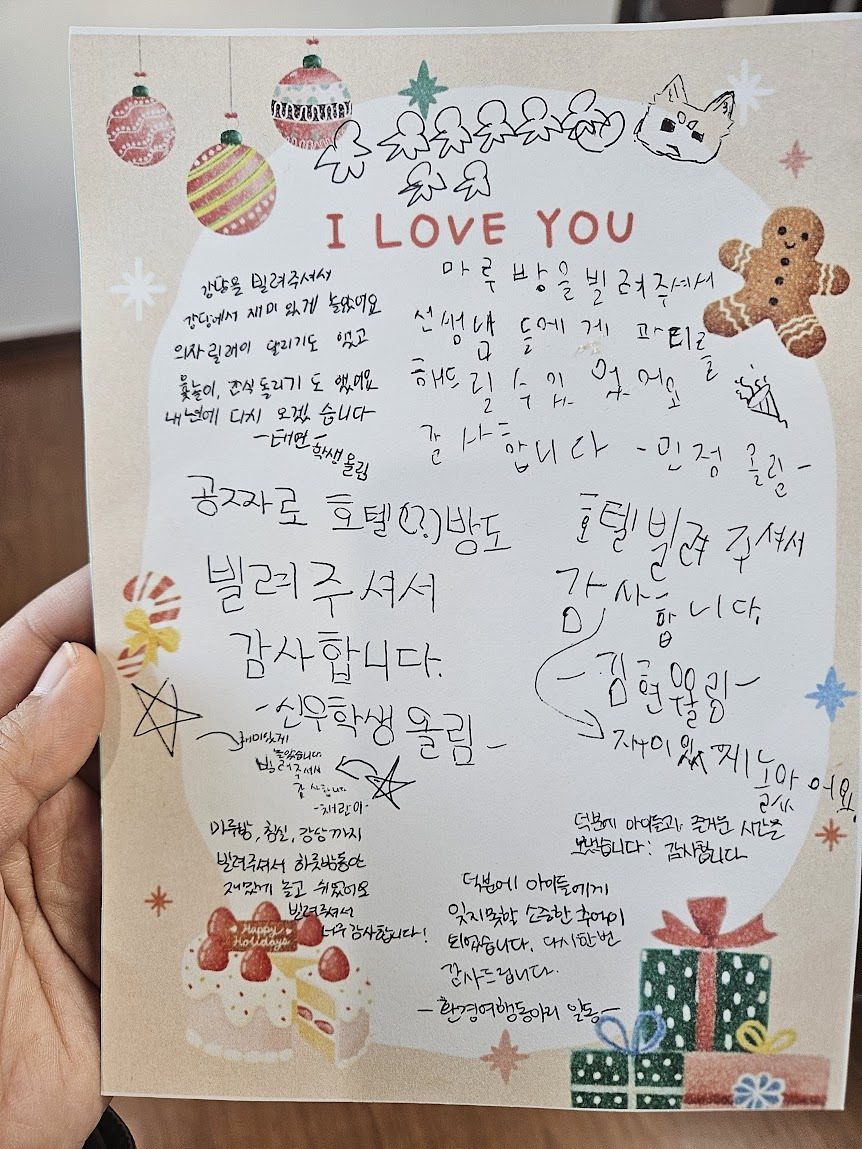 I LOVE YOU
강당을 빌려주셔서
강당에서 재미 있게 놀았어요
의자 릴레이 달리기도 했고
윷놀이, 간식 돌리기 도 했어요
내년에 다시 오겠 습니다
-태연-
학생 올림
마루 방을 빌려주셔서
선썡님 들에게 파티를
해드릴 수 있 었 어요
감사합니다 -민정 올림-
공짜로 호텔(?)방도
빌려주셔서
감사합니다.
-신우학생 올림-
호텔 빌려 주셔서
감사합니다.
-김현우올림-
재미있게 놀았어요.
재미있게
놀았습니다
빌려주셔서
감사합니다
-채란이-
마루방, 침실, 강당까지
빌려주셔서 하룻밤동안
재밌게 놀고 쉬었어요
빌려주셔서
너무 감사합니다!
덕분에 아이들과 즐거운 시간을
보냈습니다! 감사합니다
덕분에 아이들에게
잊지못할 소중한 추억이
되었습니다. 다시한번
감사드립니다.
-환경여행동아리 일동-
Happy
Holidays